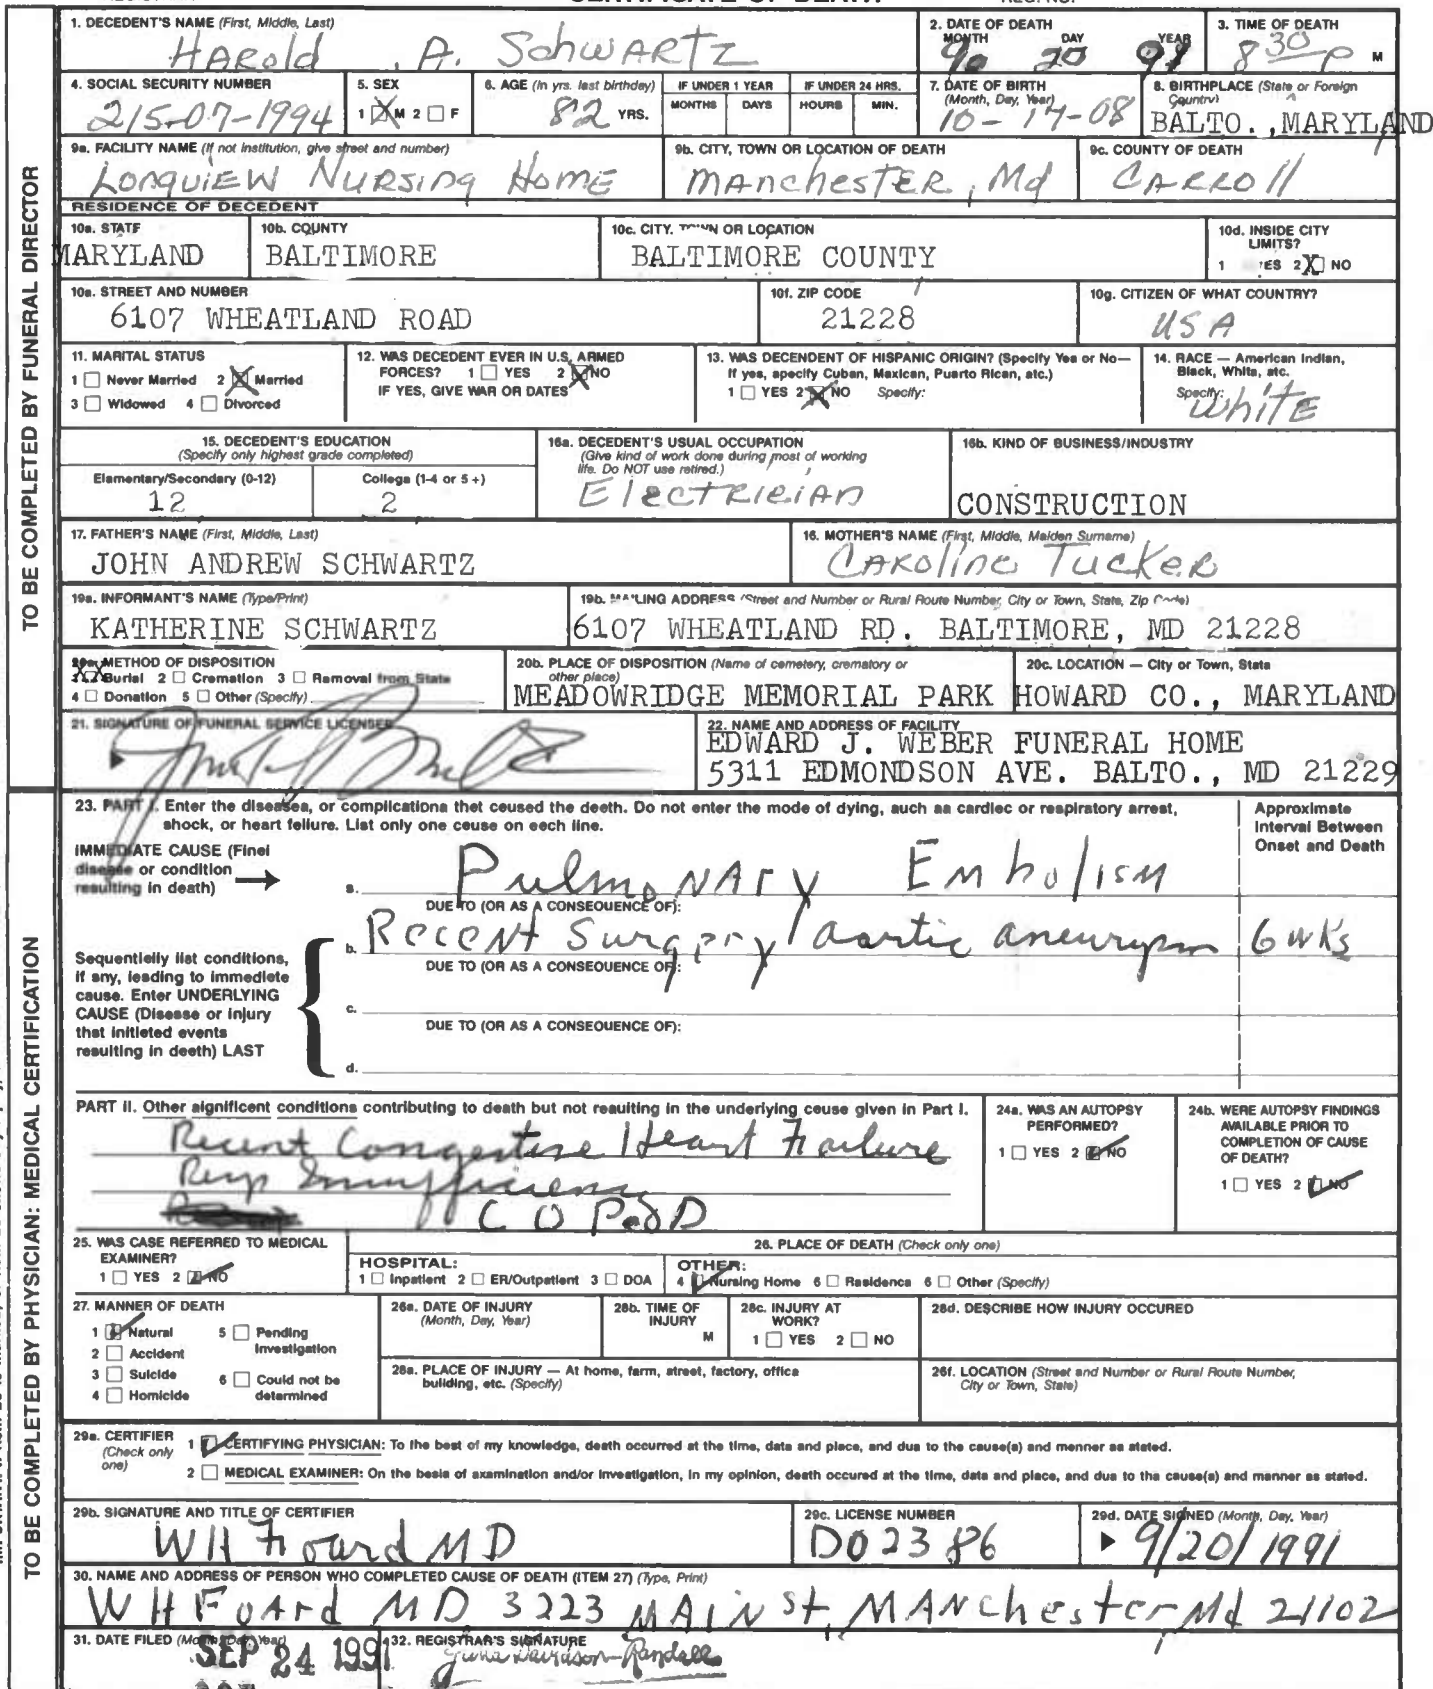 CERTIFICATE OF DEATH
1. DECEDENT'S NAME (First, Middle, Last)
Harold A. Schwartz
2. DATE OF DEATH
MONTH DAY YEAR
9 20 91
3. TIME OF DEATH
8 30 P M
4. SOCIAL SECURITY NUMBER
215-07-1994
5. SEX
1 X M 2 □ F
6. AGE (In yrs. last birthday)
82 YRS.
IF UNDER 1 YEAR
MONTHS DAYS
IF UNDER 24 HRS.
HOURS MIN.
7. DATE OF BIRTH
(Month, Day, Year)
10-17-08
8. BIRTHPLACE (State or Foreign
Country)
BALTO., MARYLAND
9a. FACILITY NAME (If not institution, give street and number)
Longview Nursing Home
9b. CITY, TOWN OR LOCATION OF DEATH
Manchester, Md
9c. COUNTY OF DEATH
Carroll
RESIDENCE OF DECEDENT
10a. STATE
MARYLAND
10b. COUNTY
BALTIMORE
10c. CITY, TOWN OR LOCATION
BALTIMORE COUNTY
10d. INSIDE CITY
LIMITS?
1 YES 2 X NO
10e. STREET AND NUMBER
6107 WHEATLAND ROAD
10f. ZIP CODE
21228
10g. CITIZEN OF WHAT COUNTRY?
USA
11. MARITAL STATUS
1 □ Never Married 2 X Married
3 □ Widowed 4 □ Divorced
12. WAS DECEDENT EVER IN U.S. ARMED
FORCES? 1 □ YES 2 X NO
IF YES, GIVE WAR OR DATES
13. WAS DECENDENT OF HISPANIC ORIGIN? (Specify Yes or No—
If yes, specify Cuban, Mexican, Puerto Rican, etc.)
1 □ YES 2 X NO Specify:
14. RACE — American Indian,
Black, White, etc.
Specify:
White
15. DECEDENT'S EDUCATION
(Specify only highest grade completed)
Elementary/Secondary (0-12)
12
College (1-4 or 5+)
2
16a. DECEDENT'S USUAL OCCUPATION
(Give kind of work done during most of working
life. Do NOT use retired.)
Electrician
16b. KIND OF BUSINESS/INDUSTRY
CONSTRUCTION
17. FATHER'S NAME (First, Middle, Last)
JOHN ANDREW SCHWARTZ
18. MOTHER'S NAME (First, Middle, Maiden Surname)
Caroline Tucker
19a. INFORMANT'S NAME (Type/Print)
KATHERINE SCHWARTZ
19b. MAILING ADDRESS (Street and Number or Rural Route Number, City or Town, State, Zip Code)
6107 WHEATLAND RD. BALTIMORE, MD 21228
20a. METHOD OF DISPOSITION
XX Burial 2 □ Cremation 3 □ Removal from State
4 □ Donation 5 □ Other (Specify)
20b. PLACE OF DISPOSITION (Name of cemetery, crematory or
other place)
MEADOWRIDGE MEMORIAL PARK
20c. LOCATION — City or Town, State
HOWARD CO., MARYLAND
21. SIGNATURE OF FUNERAL SERVICE LICENSEE
22. NAME AND ADDRESS OF FACILITY
EDWARD J. WEBER FUNERAL HOME
5311 EDMONDSON AVE. BALTO., MD 21229
TO BE COMPLETED BY FUNERAL DIRECTOR
23. PART I. Enter the diseases, or complications that caused the death. Do not enter the mode of dying, such as cardiac or respiratory arrest,
shock, or heart failure. List only one cause on each line.
Approximate
Interval Between
Onset and Death
IMMEDIATE CAUSE (Final
disease or condition
resulting in death)
a. Pulmonary Embolism
DUE TO (OR AS A CONSEQUENCE OF):
b. Recent Surgery / aortic aneurysm 6 wks
DUE TO (OR AS A CONSEQUENCE OF):
c.
DUE TO (OR AS A CONSEQUENCE OF):
d.
Sequentially list conditions,
if any, leading to immediate
cause. Enter UNDERLYING
CAUSE (Disease or injury
that initiated events
resulting in death) LAST
PART II. Other significant conditions contributing to death but not resulting in the underlying cause given in Part I.
Recent Congestive Heart Failure
Resp Insufficiency
COPD
24a. WAS AN AUTOPSY
PERFORMED?
1 □ YES 2 NO
24b. WERE AUTOPSY FINDINGS
AVAILABLE PRIOR TO
COMPLETION OF CAUSE
OF DEATH?
1 □ YES 2 NO
25. WAS CASE REFERRED TO MEDICAL
EXAMINER?
1 □ YES 2 NO
26. PLACE OF DEATH (Check only one)
HOSPITAL:
1 □ Inpatient 2 □ ER/Outpatient 3 □ DOA
OTHER:
4 Nursing Home 5 □ Residence 6 □ Other (Specify)
27. MANNER OF DEATH
1 Natural 5 □ Pending
Investigation
2 □ Accident
3 □ Suicide 6 □ Could not be
determined
4 □ Homicide
28a. DATE OF INJURY
(Month, Day, Year)
28b. TIME OF
INJURY
M
28c. INJURY AT
WORK?
1 □ YES 2 □ NO
28d. DESCRIBE HOW INJURY OCCURED
28e. PLACE OF INJURY — At home, farm, street, factory, office
building, etc. (Specify)
28f. LOCATION (Street and Number or Rural Route Number,
City or Town, State)
29a. CERTIFIER
(Check only
one)
1 CERTIFYING PHYSICIAN: To the best of my knowledge, death occurred at the time, date and place, and due to the cause(s) and manner as stated.
2 □ MEDICAL EXAMINER: On the basis of examination and/or investigation, in my opinion, death occured at the time, date and place, and due to the cause(s) and manner as stated.
29b. SIGNATURE AND TITLE OF CERTIFIER
WH Foard MD
29c. LICENSE NUMBER
D02386
29d. DATE SIGNED (Month, Day, Year)
9/20/1991
30. NAME AND ADDRESS OF PERSON WHO COMPLETED CAUSE OF DEATH (ITEM 27) (Type, Print)
WH Foard MD 3223 Main St, Manchester, Md 21102
31. DATE FILED (Month, Day, Year)
SEP 24 1991
32. REGISTRAR'S SIGNATURE
Davidson-Randall
TO BE COMPLETED BY PHYSICIAN: MEDICAL CERTIFICATION